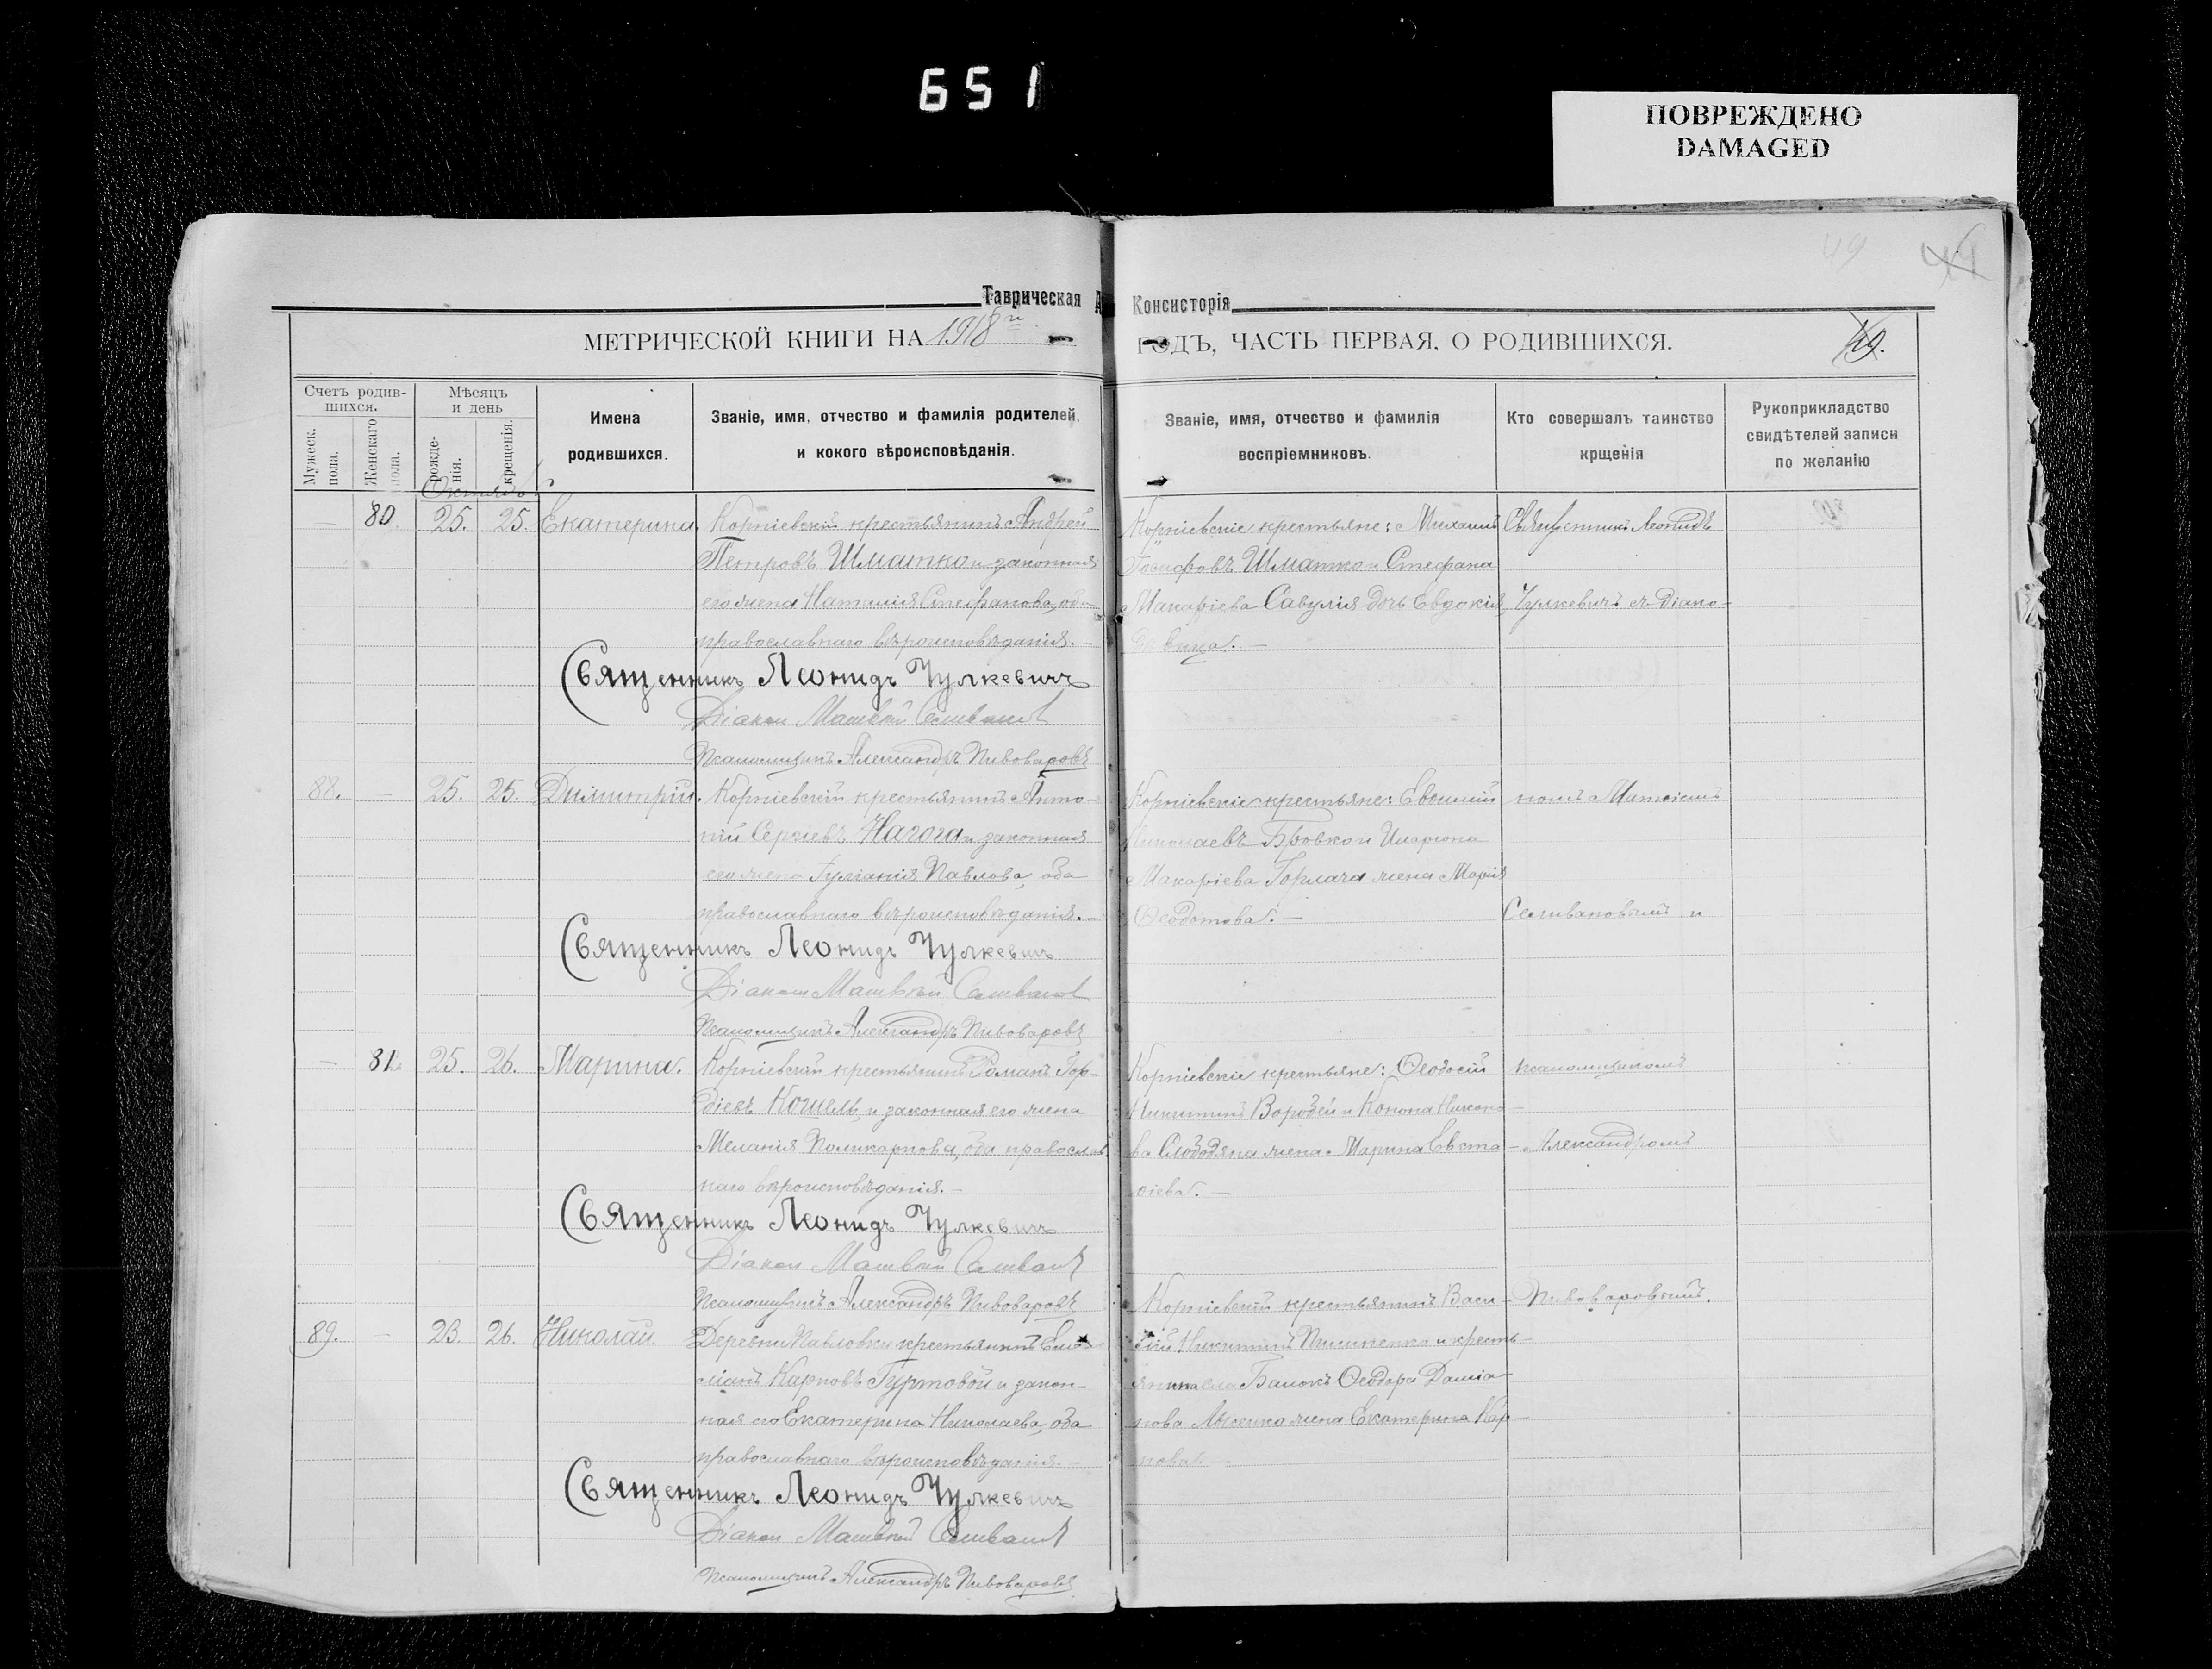 651
ПОВРЕЖДЕНО
DAMAGED
49
Таврическая
Консисторія
МЕТРИЧЕСКОЙ КНИГИ НА 1918
ГОДЪ, ЧАСТЬ ПЕРВАЯ, О РОДИВШИХСЯ.
Счетъ родив-
шихся.
Мужеск.
пола.
Женскаго
пола.
Мѣсяцъ
и день
рожде-
нія.
крещенія.
Имена
родившихся.
Званіе, имя, отчество и фамилія родителей,
и кокого вѣроисповѣданія.
Званіе, имя, отчество и фамилія
воспріемниковъ.
Кто совершалъ таинство
крщенія
Рукоприкладство
свидѣтелей записи
по желанію
80. 25. 25. Екатерина. Корніевскій крестьянинъ Андрей
Петровъ Шматко и законная
его жена Наталія Стефанова, оба
православнаго вѣроисповѣданія.
Корніевскіе крестьяне: Михаилъ
Іосифовъ Шматко и Стефана
Макаріева Савулія дочь Евдокія
дѣвица.
Священникъ Леонидъ
Чулкевичъ съ діако-
Священникъ Леонидъ Чулкевичъ
Діаконъ Матвѣй
Псаломщикъ Александръ Пивоваровъ
88. 25. 25. Димитрій. Корніевскій крестьянинъ Анто-
ній Сергіевъ Нагога и законная
его жена Іуліанія Павлова, оба
православнаго вѣроисповѣданія.
Корніевскіе крестьяне: Евѳимій
Николаевъ Бровко и Иларіона
Макаріева Горлача жена Марія
Ѳеодотова.
номъ Матвіемъ
Селивановымъ и
Священникъ Леонидъ Чулкевичъ
Діаконъ Матвѣй
Псаломщикъ Александръ Пивоваровъ
81. 25. 26. Марина. Корніевскій крестьянинъ Романъ Гор-
діевъ Кошель и законная его жена
Меланія Поликарпова, оба православ
наго вѣроисповѣданія.
Корніевскіе крестьяне: Ѳеодосій
Никитинъ Воробей и Конона Никоно
ва Слободяна жена Марина Евста
ѳіева.
псаломщикомъ
Александромъ
Священникъ Леонидъ Чулкевичъ
Діаконъ Матвѣй
Псаломщикъ Александръ Пивоваровъ
89. 23. 26. Николай. Деревни Павловки крестьянинъ
Карповъ Гуртовой и закон-
ная его Екатерина Николаева, оба
православнаго вѣроисповѣданія.
Корніевскій крестьянинъ Васи-
лій Никитинъ Пилипенко и кресть-
янина села Балокъ Ѳеодора Даміа
нова Лысенко жена Екатерина Кар-
пова.
Пивоваровымъ.
Священникъ Леонидъ Чулкевичъ
Діаконъ Матвѣй
Псаломщикъ Александръ Пивоваровъ